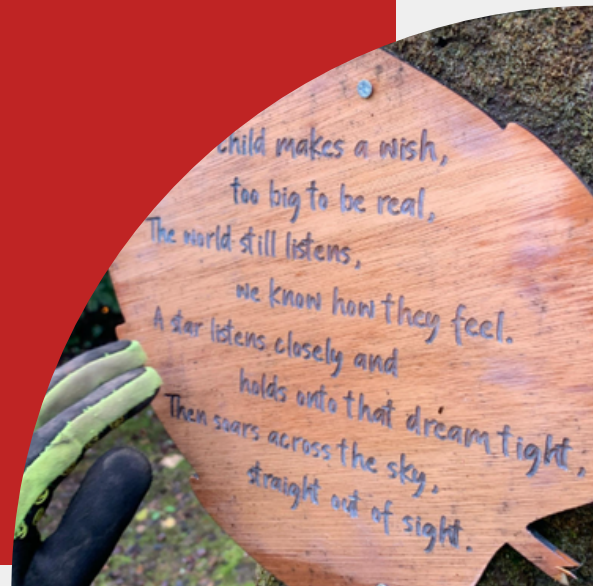 child makes a wish,
too big to be real,
The world still listens,
we know how they feel.
A star listens closely and
holds onto that dream tight,
Then soars across the sky,
straight out of sight.